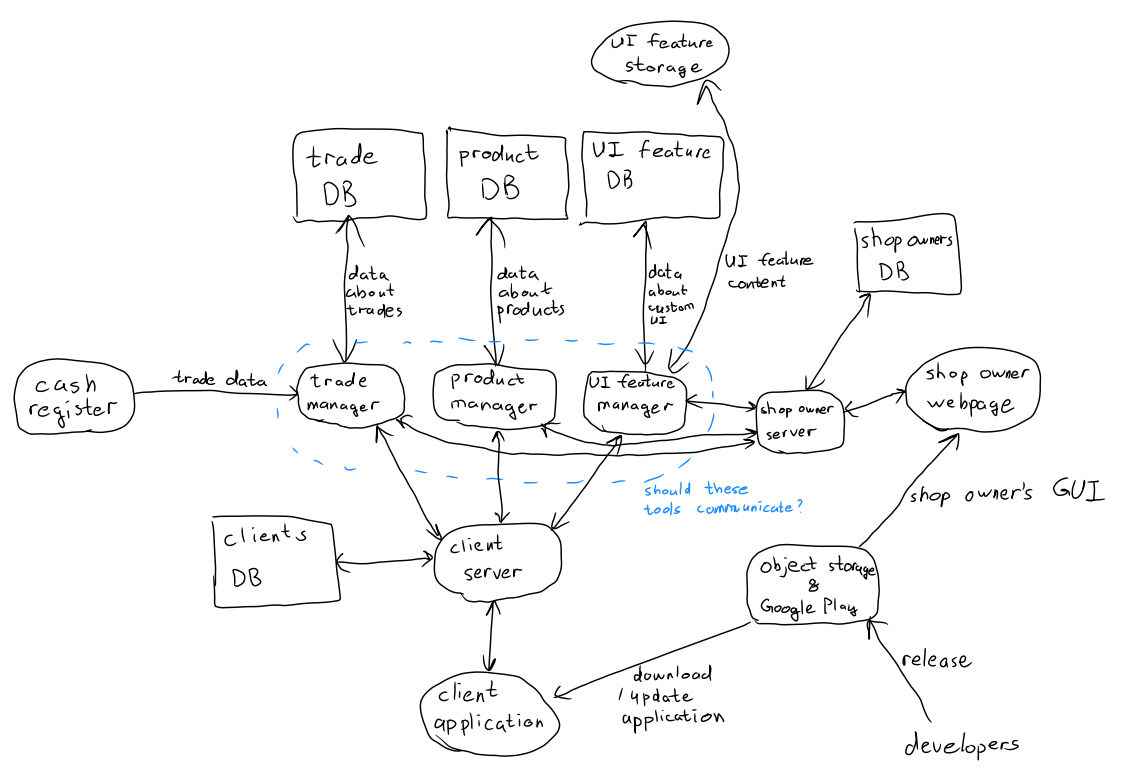 UI feature
storage
trade
DB
product
DB
UI feature
DB
shop owners
DB
data
about
trades
data
about
products
data
about
custom
UI
UI feature
content
cash
register
trade data
trade
manager
product
manager
UI feature
manager
shop owner
server
shop owner
webpage
should these
tools communicate?
shop owner's GUI
clients
DB
client
server
object storage
&
Google Play
release
developers
download
/ update
application
client
application